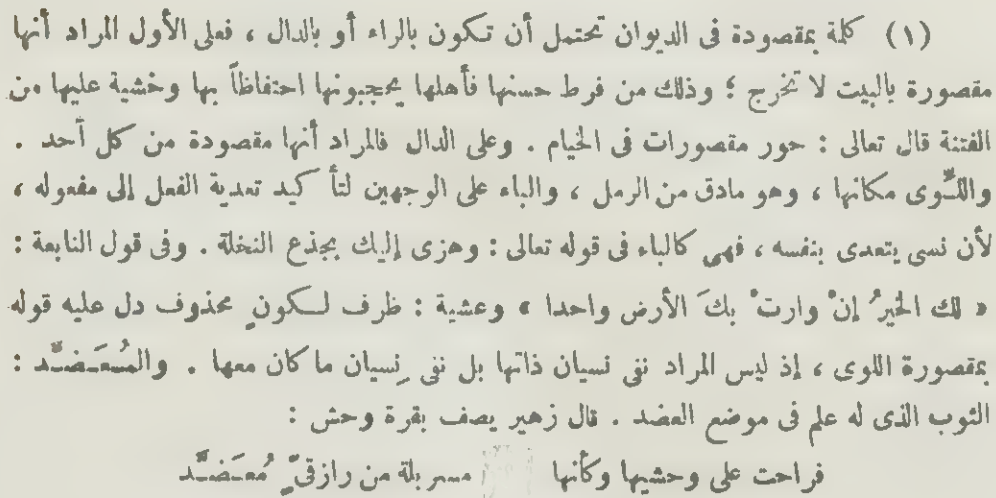 (١) كلمة بمقصودة فى الديوان تحتمل أن تكون بالراء أو بالدال ، فعلى الأول المراد أنها
مقصورة بالبيت لا تخرج ؛ وذلك من فرط حسنها فأهلها يحجبونها احتفاظاً بها وخشية عليها من
الفتنة قال تعالى : حور مقصورات فى الخيام . وعلى الدال فالمراد أنها مقصودة من كل أحد .
واللِّوى مكانها ، وهو مادق من الرمل ، والباء على الوجهين لتأكيد تعدية الفعل إلى مفعوله ،
لأن نسى يتعدى بنفسه ، فهى كالباء فى قوله تعالى : وهزى إليك بجذع النخلة . وفى قول النابعة :
« لك الخيرُ إنْ وارتْ بكَ الأرض واحدا » وعشية : ظرف لكونٍ محذوف دل عليه قوله
بمقصورة اللوى ، إذ ليس المراد نفى نسيان ذاتها بل نفى نِسيان ما كان معها . والمُعَضَّد :
الثوب الذى له علم فى موضع العضد . قال زهير يصف بقرة وحش :
فراحت على وحشيها وكأنها مسربلة من رازقىٍّ مُعَضَّد